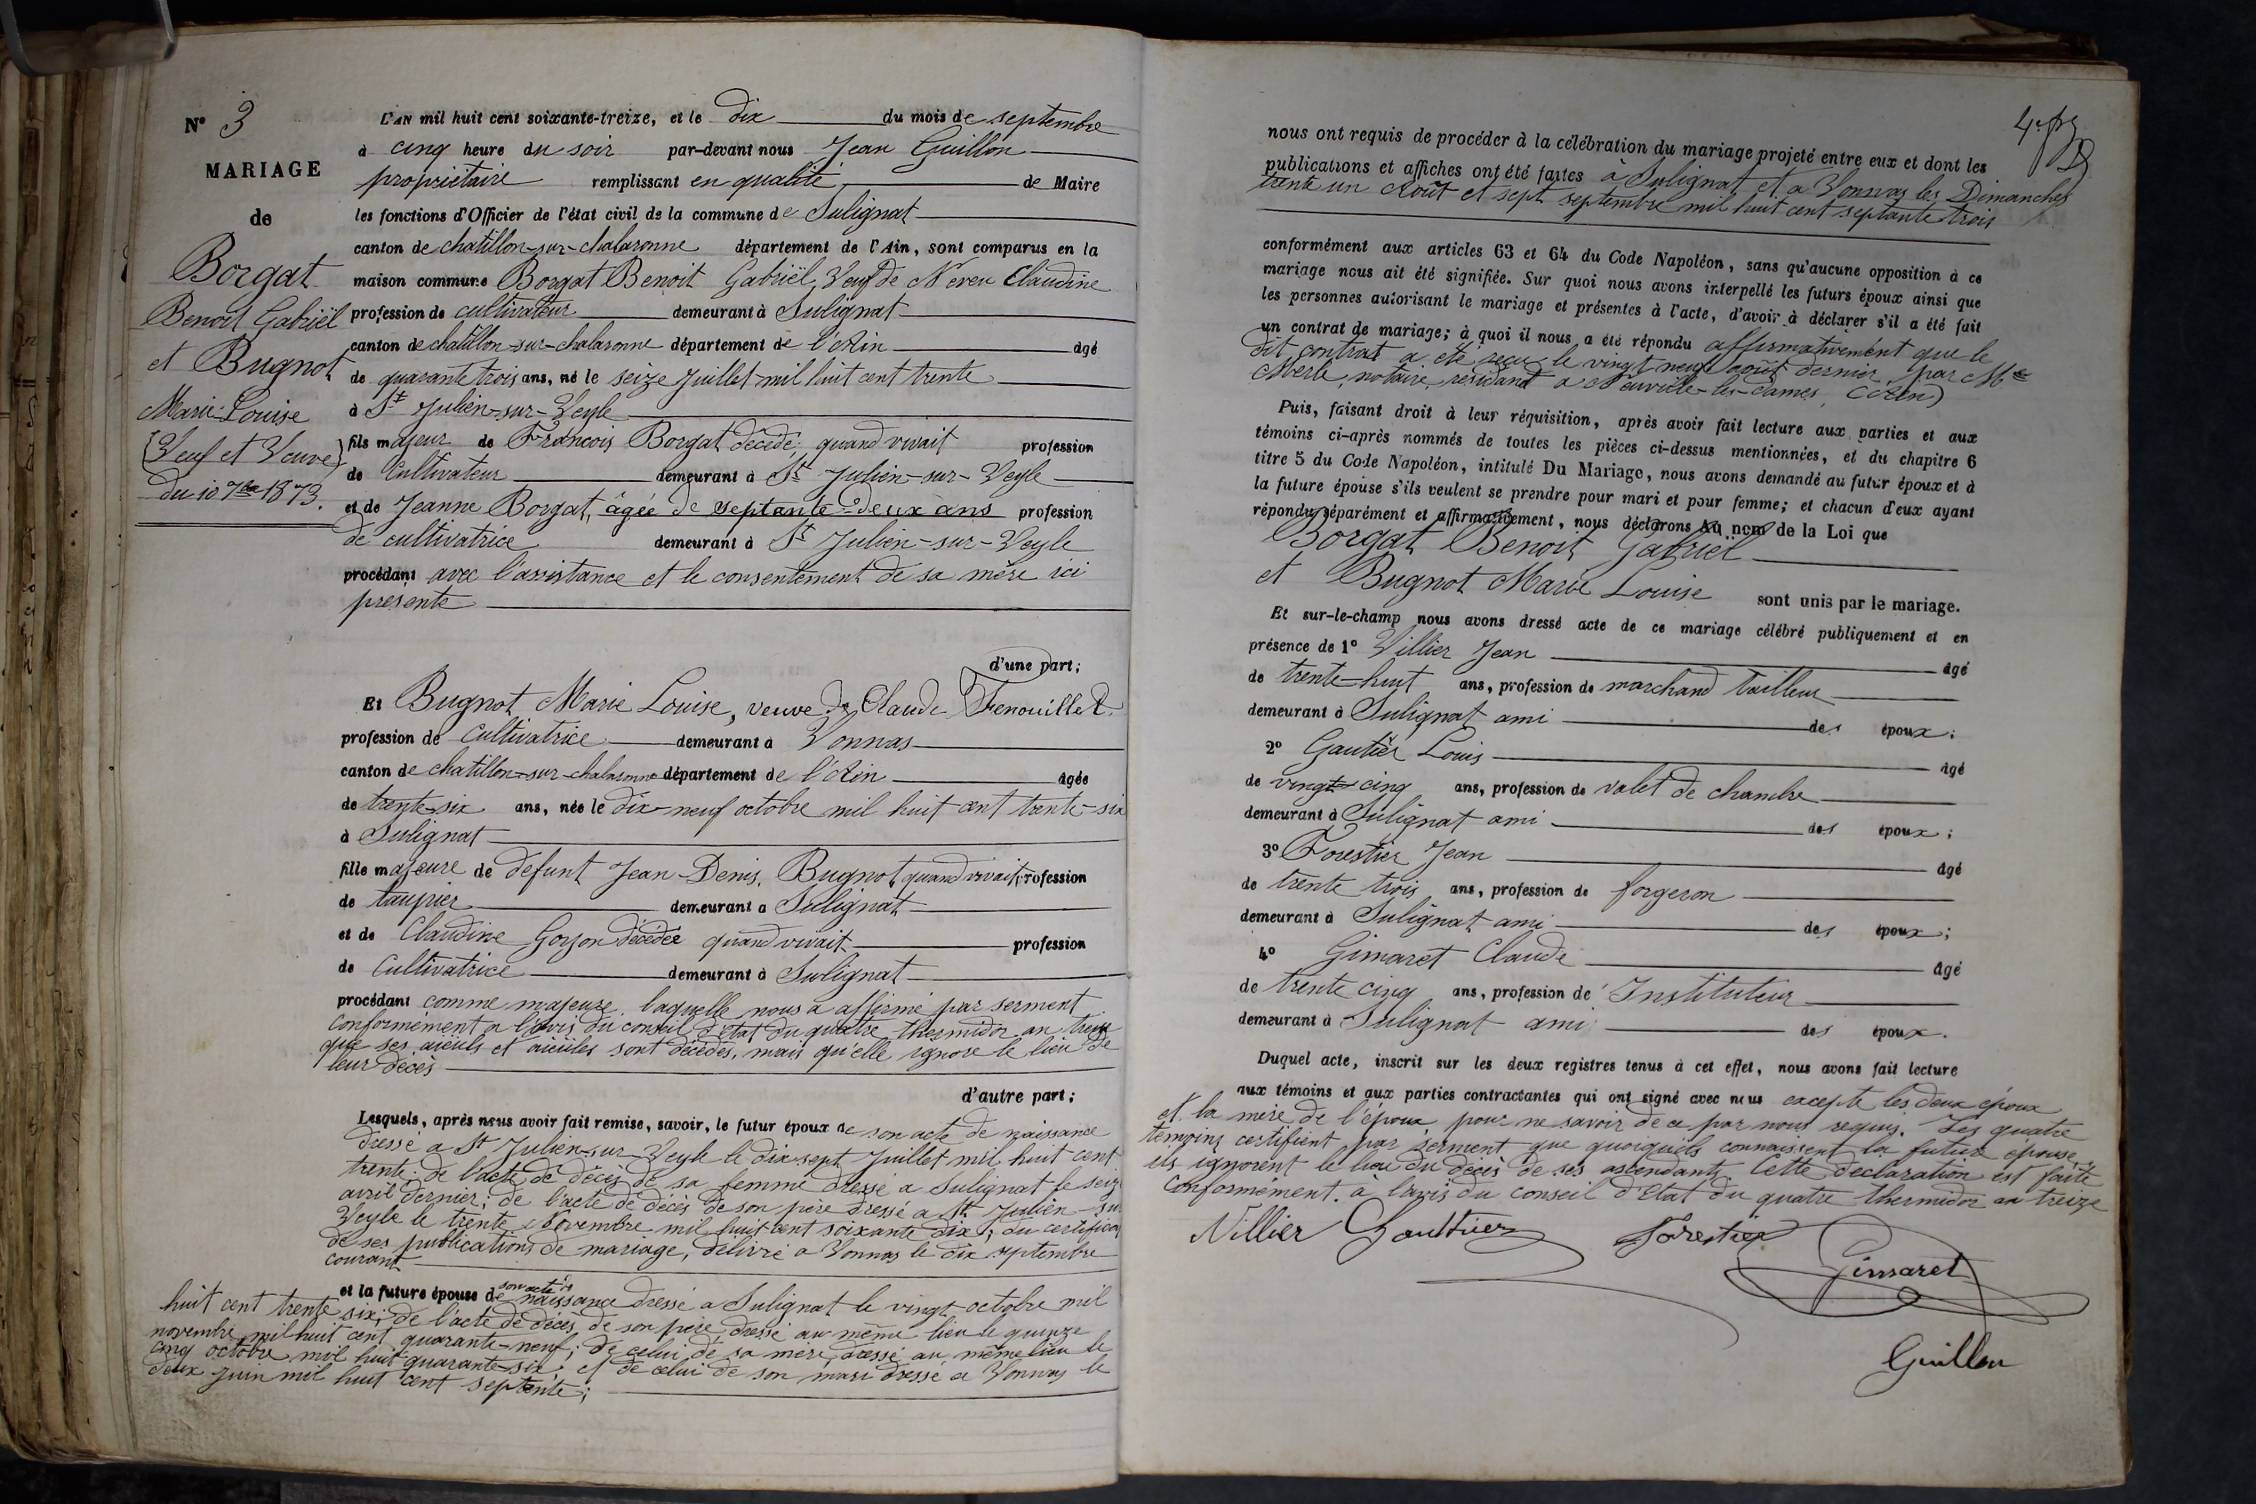 N° 3
MARIAGE
de
Borgat
Benoit Gabriël
et Bugnot
Marie Louise
(Veuf et Veuve)
du 10 7bre 1873.
L'AN mil huit cent soixante-treize, et le dix du mois de septembre
à cinq heure du soir par-devant nous Jean Guillon
propriétaire remplissant en qualité de Maire
les fonctions d'Officier de l'état civil de la commune de Sulignat
canton de chatillon-sur-chalaronne département de l'Ain, sont comparus en la
maison commune Borgat Benoit Gabriël, Veuf de Neveu Claudine
profession de cultivateur demeurant à Sulignat
canton de chatillon-sur-chalaronne département de l'Ain âgé
de quarante trois ans, né le seize Juillet mil huit cent trente
à St Julien-sur-Veyle
fils majeur de François Borgat décédé, quand vivait profession
de Cultivateur demeurant à St Julien-sur-Veyle
et de Jeanne Borgat, âgée de septante-deux ans profession
de cultivatrice demeurant à St Julien-sur-Veyle
procédant avec l'assistance et le consentement de sa mère ici
présente
d'une part;
Et Bugnot Marie Louise, veuve de Claude Fenouillet
profession de Cultivatrice demeurant à Vonnas
canton de chatillon-sur-chalaronne département de l'Ain âgée
de trente-six ans, née le dix-neuf octobre mil huit cent trente-six
à Sulignat
fille majeure de défunt Jean-Denis Bugnot quand vivait profession
de taupier demeurant à Sulignat
et de Claudine Goyon décédée quand vivait profession
de Cultivatrice demeurant à Sulignat
procédant comme majeure, laquelle nous a affirmé par serment
conformément a l'avis du conseil d'Etat du quatre thermidor an treize
que ses aïeuls et aïeules sont décédés, mais qu'elle ignore le lieu de
leur décès
d'autre part;
Lesquels, après nous avoir fait remise, savoir, le futur époux de son acte de naissance
dressé a St Julien-sur-Veyle le dix sept Juillet mil huit cent
trente; de l'acte de décès de sa femme dressé a Sulignat le seize
avril dernier; de l'acte de décès de son père dressé a St Julien-sur
Veyle le trente Novembre mil huit cent soixante dix; du certificat
de ses publications de mariage, délivré a Vonnas le dix septembre
courant
et la future épouse de son acte de naissance dressé a Sulignat le vingt octobre mil
huit cent trente six; de l'acte de décès de son père dressé au même lieu le quinze
novembre mil huit cent quarante-neuf; de celui de sa mère, dressé au même lieu le
cinq octobre mil huit quarante-six; et de celui de son mari dressé a Vonnas le
deux Juin mil huit cent septante;
nous ont requis de procéder à la célébration du mariage projeté entre eux et dont les
publications et affiches ont été faites à Sulignat et a Vonnas les Dimanches
trente un Août et sept septembre mil huit cent septante trois
conformément aux articles 63 et 64 du Code Napoléon, sans qu'aucune opposition à ce
mariage nous ait été signifiée. Sur quoi nous avons interpellé les futurs époux ainsi que
les personnes autorisant le mariage et présentes à l'acte, d'avoir à déclarer s'il a été fait
un contrat de mariage; à quoi il nous a été répondu affirmativement que le
dit contrat a été reçu le vingt neuf août dernier, par Me
Merle, notaire résidant a Neuville-les-dames (Ain)
Puis, faisant droit à leur réquisition, après avoir fait lecture aux parties et aux
témoins ci-après nommés de toutes les pièces ci-dessus mentionnées, et du chapitre 6
titre 5 du Code Napoléon, intitulé Du Mariage, nous avons demandé au futur époux et à
la future épouse s'ils veulent se prendre pour mari et pour femme; et chacun d'eux ayant
répondu séparément et affirmativement, nous déclarons au nom de la Loi que
Borgat Benoit Gabriel
et Bugnot Marie Louise sont unis par le mariage.
Et sur-le-champ nous avons dressé acte de ce mariage célébré publiquement et en
présence de 1° Villier Jean âgé
de trente-huit ans, profession de marchand tailleur
demeurant à Sulignat ami des époux;
2° Gautier Louis âgé
de vingt cinq ans, profession de valet de chambre
demeurant à Sulignat ami des époux;
3° Forestier Jean âgé
de trente trois ans, profession de forgeron
demeurant à Sulignat ami des époux;
4° Gimaret Claude âgé
de trente cinq ans, profession de Instituteur
demeurant à Sulignat ami des époux.
Duquel acte, inscrit sur les deux registres tenus à cet effet, nous avons fait lecture
aux témoins et aux parties contractantes qui ont signé avec nous excepté les deux époux
et la mère de l'époux pour ne savoir de ce par nous requis. Les quatre
témoins certifient par serment que quoiqu'ils connaissent la future épouse,
ils ignorent le lieu du décès de ses ascendants. Cette déclaration est faite
conformément à l'avis du conseil d'Etat du quatre thermidor an treize
Villier Gaulthier Forestier
Gimaret
Guillon